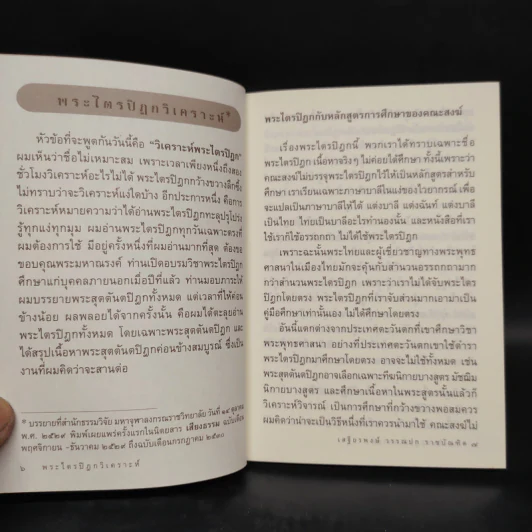 พระไตรปิฎกวิเคราะห์*
หัวข้อที่จะพูดกันวันนี้คือ "วิเคราะห์พระไตรปิฎก"
ผมเห็นว่าชื่อไม่เหมาะสม เพราะเวลาเพียงหนึ่งถึงสอง
ชั่วโมงวิเคราะห์อะไรไม่ได้ พระไตรปิฎกกว้างขวางลึกซึ้ง
ไม่ทราบว่าจะวิเคราะห์แง่ใดบ้าง อีกประการหนึ่ง คือการ
วิเคราะห์หมายความว่าได้อ่านพระไตรปิฎกทะลุปรุโปร่ง
รู้ทุกแง่ทุกมุม ผมอ่านพระไตรปิฎกทุกวันเฉพาะตรงที่
ผมต้องการใช้ มีอยู่ครั้งหนึ่งที่ผมอ่านมากที่สุด ต้องขอ
ขอบคุณพระมหาณรงค์ ท่านเปิดอบรมวิชาพระไตรปิฎก
ศึกษาแก่บุคคลภายนอกเมื่อปีที่แล้ว ท่านมอบภาระให้
ผมบรรยายพระสุตตันตปิฎกทั้งหมด แต่เวลาที่ให้ค่อน
ข้างน้อย ผลพลอยได้จากครั้งนั้น คือผมได้ตะลุยอ่าน
พระไตรปิฎกทั้งหมด โดยเฉพาะพระสุตตันตปิฎก และ
ได้สรุปเนื้อหาพระสุตตันตปิฎกค่อนข้างสมบูรณ์ ซึ่งเป็น
งานที่ผมคิดว่าจะสานต่อ
* บรรยายที่สำนักธรรมวิจัย มหาจุฬาลงกรณราชวิทยาลัย วันที่ ๑๙ ตุลาคม
พ.ศ. ๒๕๒๙ พิมพ์เผยแพร่ครั้งแรกในนิตยสาร เสียงธรรม ฉบับเดือน
พฤศจิกายน -ธันวาคม ๒๕๒๙ ถึงฉบับเดือนกรกฎาคม ๒๕๓๐
๖ พระไตรปิฎกวิเคราะห์
พระไตรปิฎกกับหลักสูตรการศึกษาของคณะสงฆ์
เรื่องพระไตรปิฎกนี้ พวกเราได้ทราบเฉพาะชื่อ
พระไตรปิฎก เนื้อหาจริงๆ ไม่ค่อยได้ศึกษา ทั้งนี้เพราะว่า
คณะสงฆ์ไม่บรรจุพระไตรปิฎกไว้ให้เป็นหลักสูตรสำหรับ
ศึกษา เราเรียนเฉพาะภาษาบาลีในแง่ของไวยากรณ์ เพื่อ
จะแปลเป็นภาษาบาลีให้ได้ แต่งบาลี แต่งฉันท์ แต่งบาลี
เป็นไทย ไทยเป็นบาลีอะไรทำนองนั้น และหนังสือที่เรา
ใช้เราก็ใช้อรรถกถา ไม่ได้ใช้พระไตรปิฎก
เพราะฉะนั้นพระไทยและผู้เชี่ยวชาญทางพระพุทธ
ศาสนาในเมืองไทยมักจะคุ้นกับสำนวนอรรถกถามาก
กว่าสำนวนพระไตรปิฎก เพราะว่าเราไม่ได้จับพระไตร
ปิฎกโดยตรง พระไตรปิฎกที่เราจับส่วนมากเอามาเป็น
คู่มือศึกษาเท่านั้นเอง ไม่ได้ศึกษาโดยตรง
อันนี้แตกต่างจากประเทศตะวันตกที่เขาศึกษาวิชา
พระพุทธศาสนา อย่างที่ประเทศตะวันตกเขาใช้ตำรา
พระไตรปิฎกมาศึกษาโดยตรง อาจจะไม่ใช้ทั้งหมด เช่น
พระสุตตันตปิฎกอาจเลือกเฉพาะทีฆนิกายบางสูตร มัชฌิม
นิกายบางสูตร และศึกษาเนื้อหาในพระสูตรนั้นแล้วก็
วิเคราะห์วิจารณ์ เป็นการศึกษาที่กว้างขวางพอสมควร
ผมคิดว่าน่าจะเป็นวิธีหนึ่งที่เราควรนำมาใช้ คณะสงฆ์ไม่
เสฐียรพงษ์ วรรณปก ราชบัณฑิต ๗